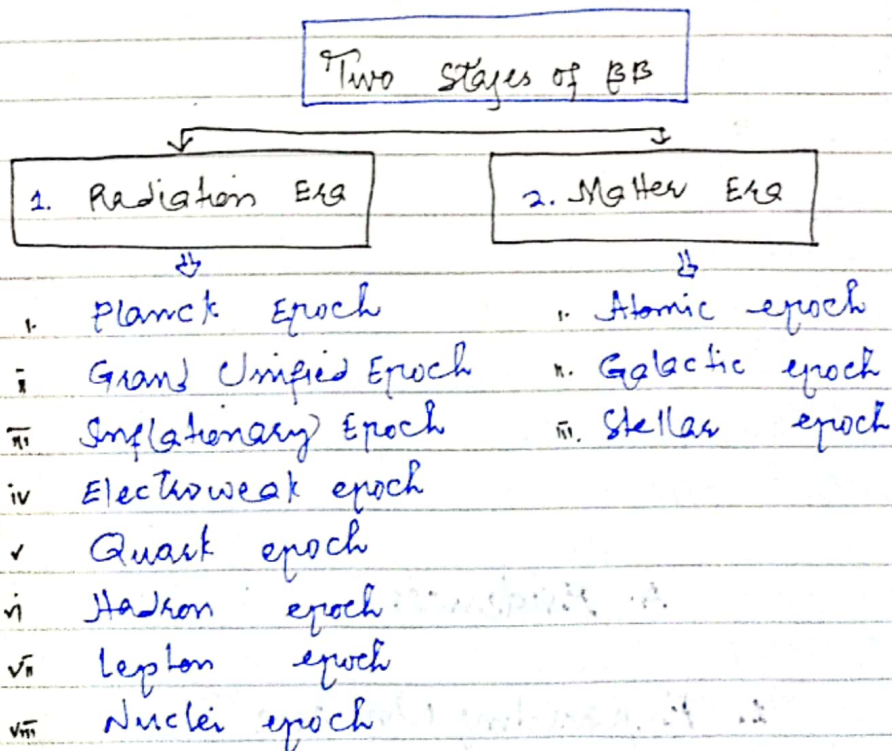 Two Stages of BB
1. Radiation Era
2. Matter Era
i. Planck Epoch
ii Grand Unified Epoch
iii Inflationary Epoch
iv Electroweak epoch
v Quark epoch
vi Hadron epoch
vii Lepton epoch
viii Nuclei epoch
i. Atomic epoch
ii. Galactic epoch
iii. Stellar epoch